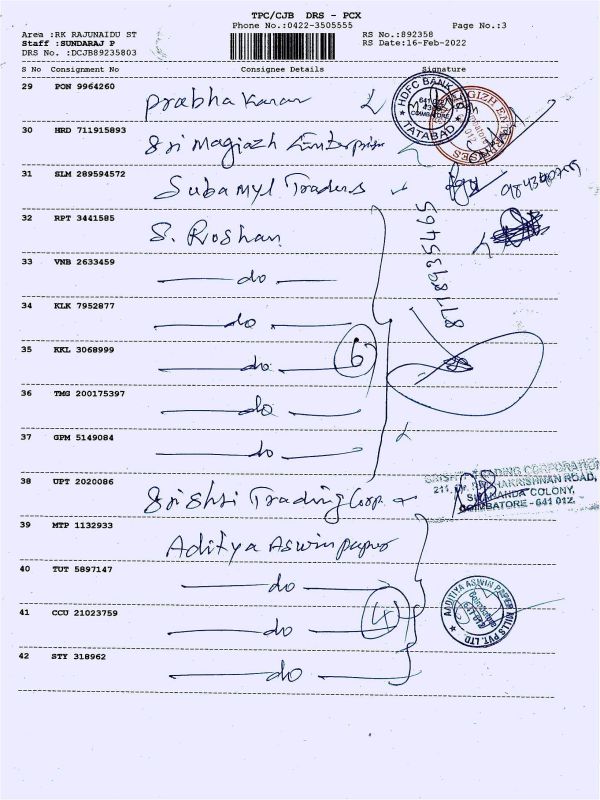 TPC/CJB DRS - PCX
Phone No.:0422-3505555 Page No.:3
Area :RK RAJUNAIDU ST RS No.:892358
Staff :SUNDARAJ P RS Date:16-Feb-2022
DRS No. :DCJB89235803
S No Consignment No Consignee Details Signature
29 PON 9964260 Prabhakaran
HDFC BANK
641 012
COIMBATORE
TATABAD
30 HRD 711915893 Sri Magiazh Enterprises
31 SLM 289594572 Subamyl Traders
32 RPT 3441585 S. Roshan
33 VNB 2633459 do
34 KLK 7952877 do
35 KKL 3068999 do 6
36 TMG 200175397 do
37 GPM 5149084 do
38 UPT 2020086 Sri Shri Trading Corp.
TRADING CORPORATION
211, ROAD,
COLONY,
COIMBATORE - 641 012.
39 MTP 1132933 Aditya Aswin paper
40 TUT 5897147 do
41 CCU 21023759 do 4
ADITIYA ASWIN PAPER MILLS PVT. LTD.
Coimbatore
641 012
42 STY 318962 do